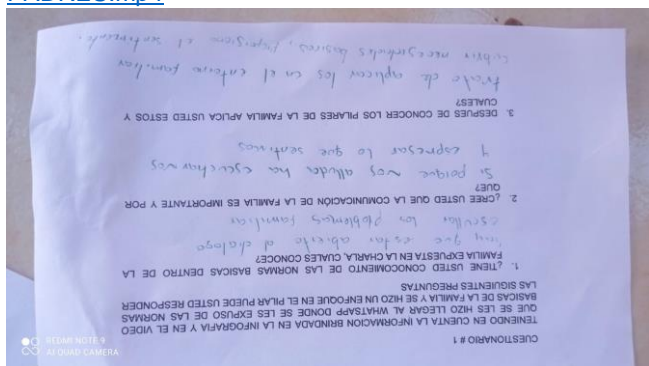 PADRES.mp4
CUESTIONARIO # 1
TENIENDO EN CUENTA LA INFORMACION BRINDADA EN LA INFOGRAFIA Y EN EL VIDEO
QUE SE LES HIZO LLEGAR AL WHATSAPP DONDE SE LES EXPUSO DE LAS NORMAS
BASICAS DE LA FAMILIA Y SE HIZO UN ENFOQUE EN EL PILAR PUEDE USTED RESPONDER
LAS SIGUIENTES PREGUNTAS
1. ¿TIENE USTED CONOCOMIENTO DE LAS NORMAS BASICAS DENTRO DE LA
FAMILIA EXPUESTA EN LA CHARLA, CUALES CONOCE?
hay que estar abierto al dialogo
escullar los ploblemas familiar
2. ¿CREE USTED QUE LA COMUNICACIÓN DE LA FAMILIA ES IMPORTANTE Y POR
QUE?
Si porque nos alludar ha escucharnos
y espresar lo que sentimos
3. DESPUES DE CONOCER LOS PILARES DE LA FAMILIA APLICA USTED ESTOS Y
CUALES?
trato de aplicar los en el entorno familiar
cubrir necesidades basicas, el sentimiento.
REDMI NOTE 9
AI QUAD CAMERA